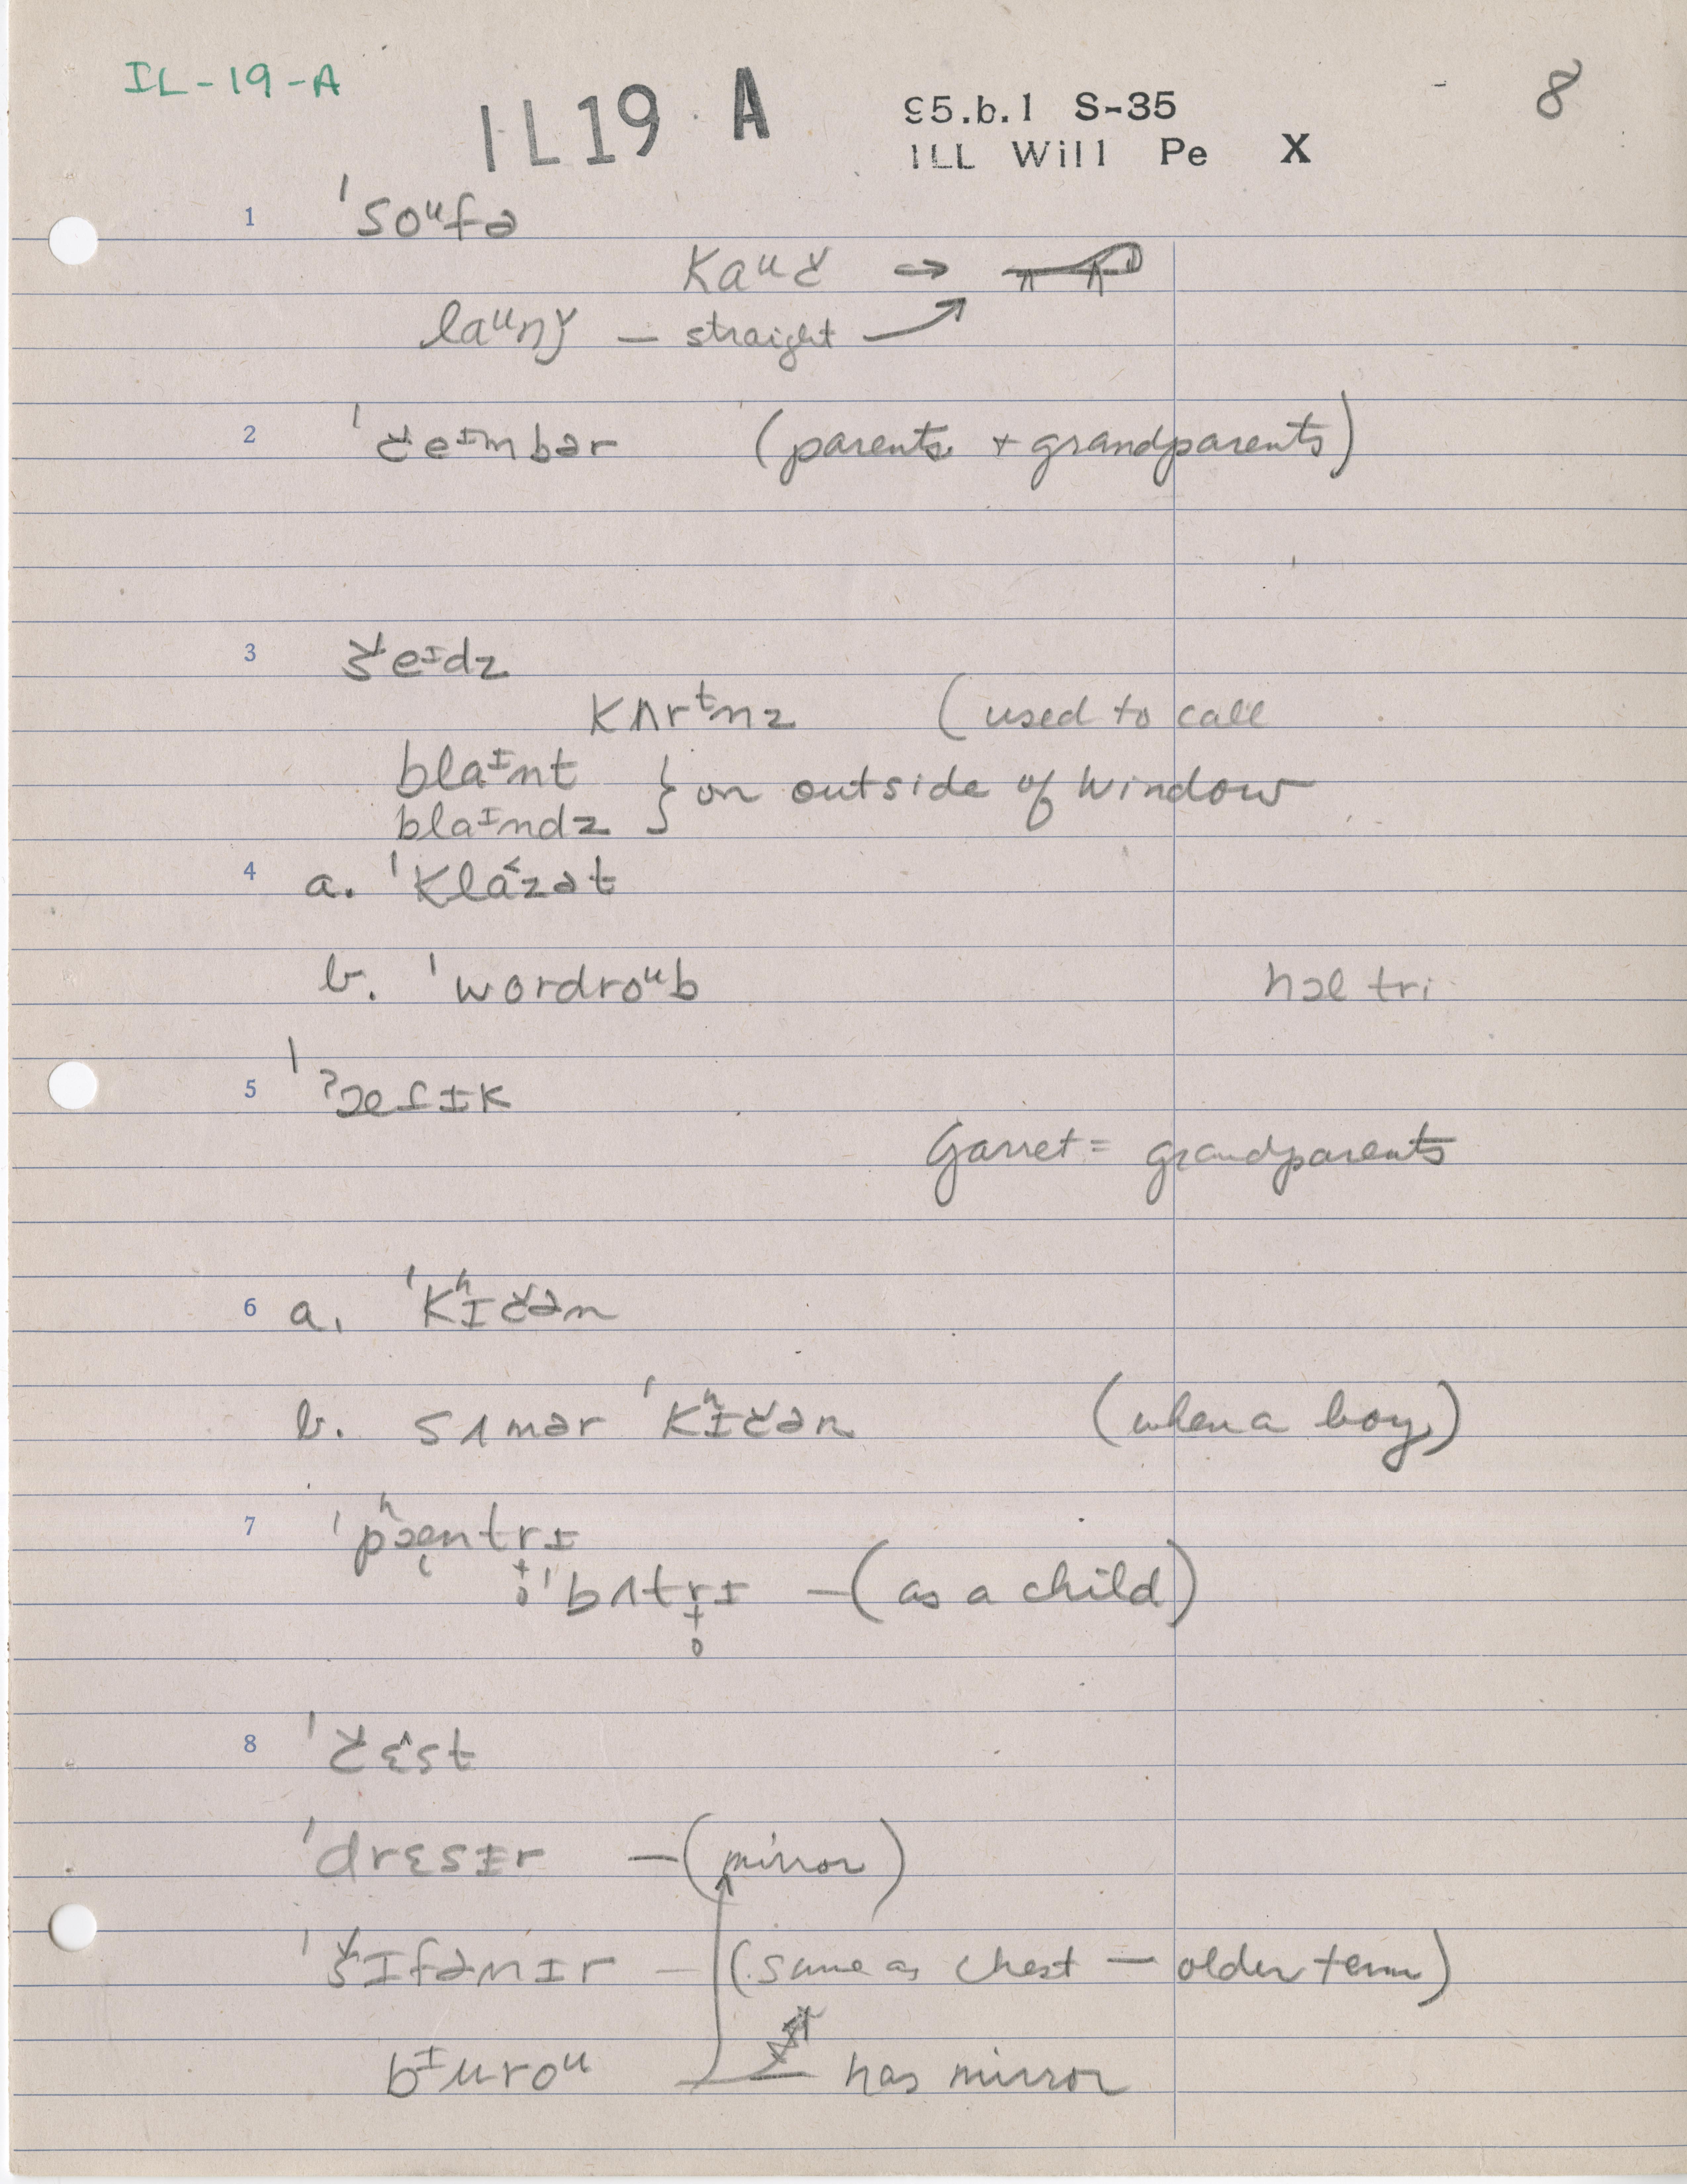 IL-19-A
IL19 A
95.b.1 S-35
ILL Will Pe X
8
1 ˈsoᵘfə
kaᵘč →
laᵘnǰ — straight
2 ˈčeᴵmbər (parents + grandparents)
3 šeᴵdz
kʌrᵗnz (used to call
blaᴵnt
blaᴵndz } on outside of window
4 a. ˈklɑ˂zət
b. ˈwordroᵘb hɔl tri
5 ˈˀæfɪk
Garret = grandparents
6 a. ˈkʰɪčən
b. sʌmər ˈkʰɪčən (when a boy)
7 ˈpʰæntrɪ
ˈbʌtrɪ — (as a child)
8 ˈčɛ^st
ˈdrɛsɪr — (mirror)
ˈšɪfənɪr — (same as chest — older term)
bᴵuroᵘ — has mirror